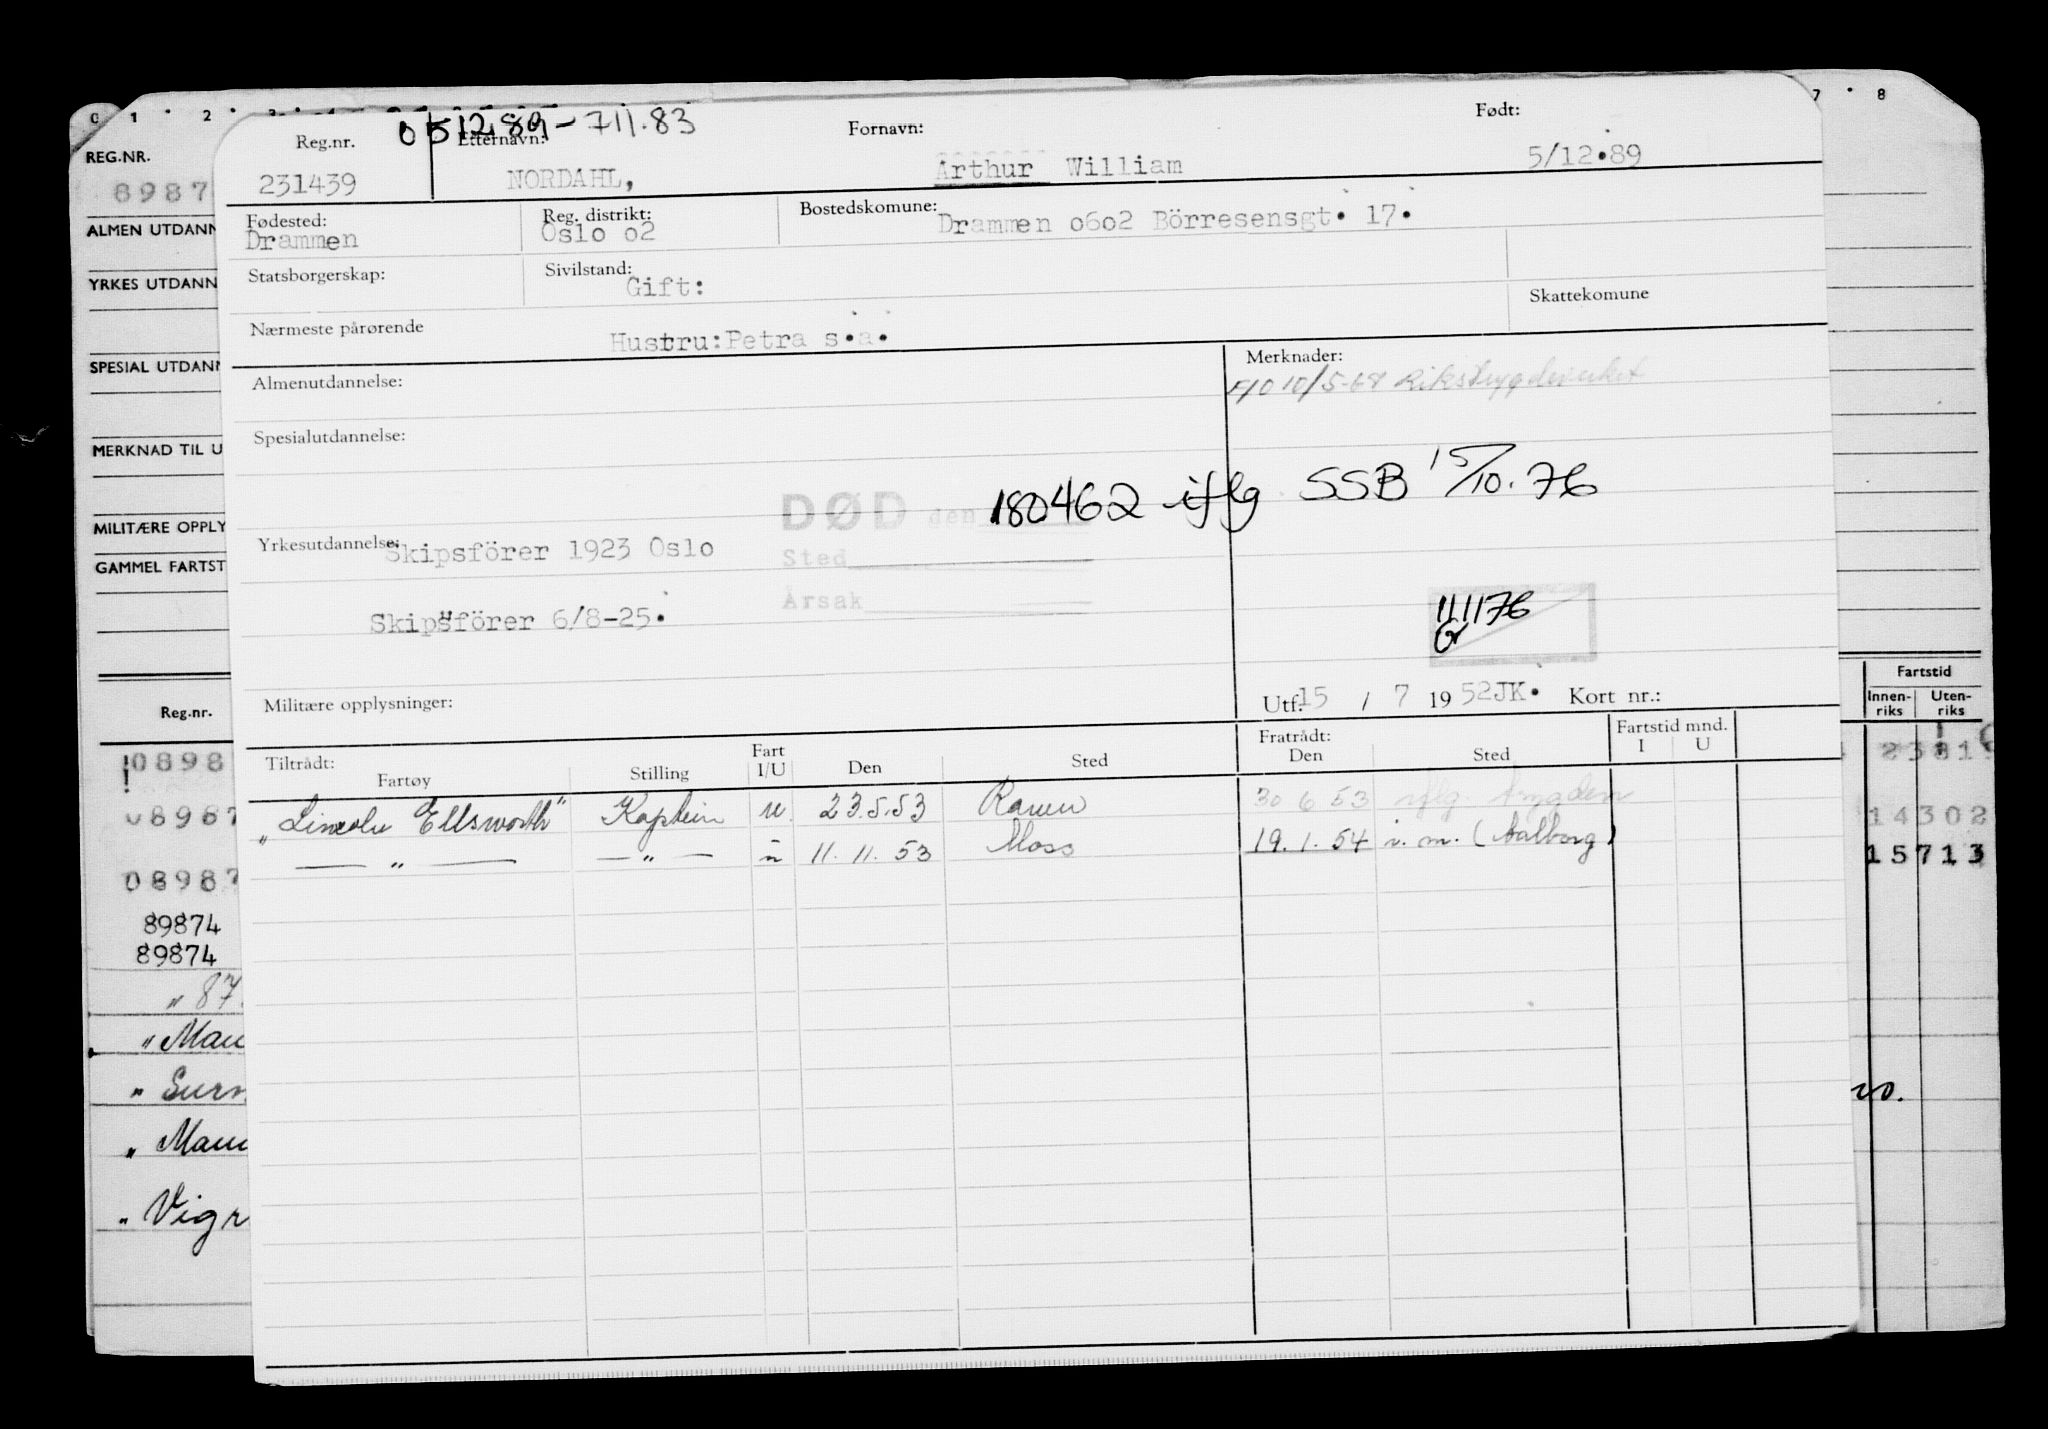 C 1 2 3 7 8
REG.NR.
8987
ALMEN UTDANN
YRKES UTDANN
SPESIAL UTDANN
MERKNAD TIL U
MILITÆRE OPPLY
GAMMEL FARTST
Reg.nr.
0898
08987
08987
89874
89874
" 87
" Mau
"
" Mau
" Vigr
051289-711.83
Reg.nr. Etternavn: Fornavn: Født:
231439 NORDAHL, Arthur William 5/12.89
Fødested: Reg. distrikt: Bostedskomune:
Drammen Oslo o2 Drammen o6o2 Börresensgt. 17.
Statsborgerskap: Sivilstand: Skattekomune
Gift:
Nærmeste pårørende Hustru:Petra s.a.
Almenutdannelse: Merknader:
10/5-68 Rikstrygdeverket
Spesialutdannelse:
DØD den 180462 iflg SSB 15/10.76
Yrkesutdannelse: Skipsförer 1923 Oslo
Sted
Årsak
Skipsförer 6/8-25.
111176
Gr
Militære opplysninger: Utf. 15 / 7 19 52JK. Kort nr.:
Tiltrådt: Fratrådt: Fartstid mnd.
Fartøy Stilling Fart I/U Den Sted Den Sted I U
"Lincoln Ellsworth" Kaptein u. 23.5.53 30 6 53 iflg.
— " — — " — " 11. 11. 53 Moss 19. 1. 54 i. m. (Aalborg)
Fartstid
Innen-riks Uten-riks
14302
15713